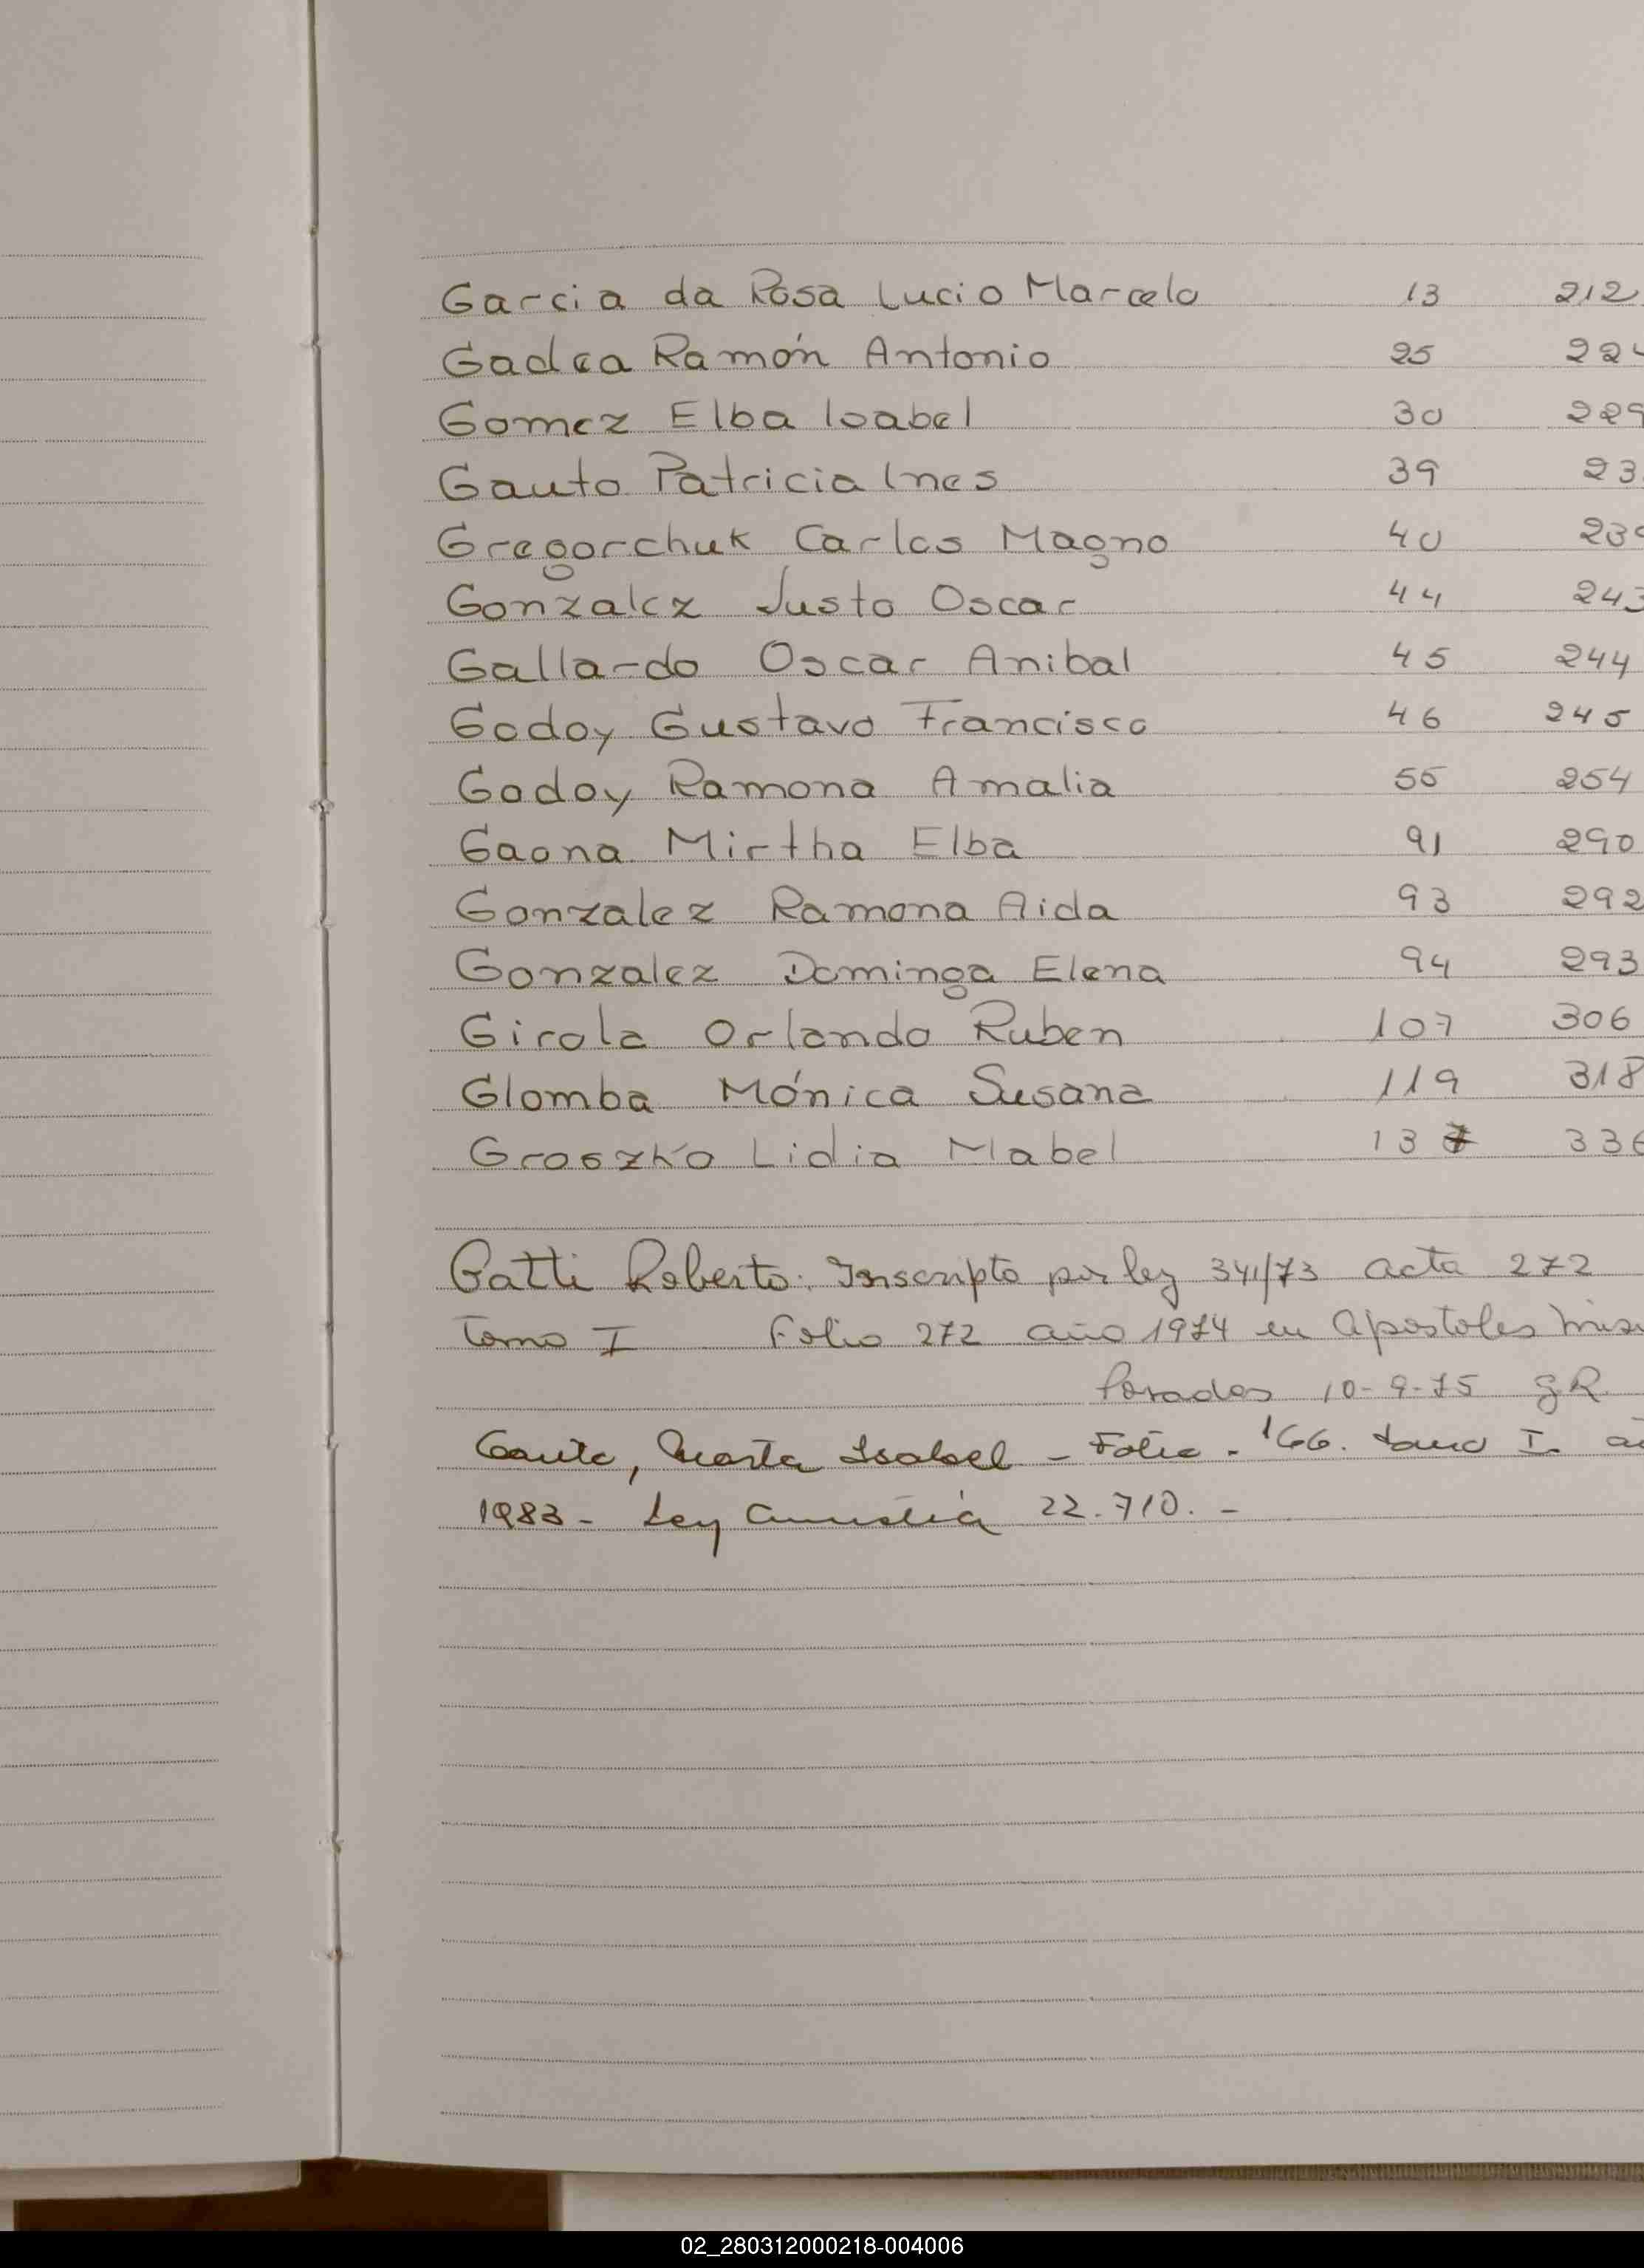 Garcia da Rosa Lucio Marcelo 13 212
Gadea Ramón Antonio 25 224
Gomez Elba Isabel 30 229
Gauto Patricia Ines 39 23
Gregorchuk Carlos Magno 40 239
Gonzalez Justo Oscar 44 243
Gallardo Oscar Anibal 45 244
Godoy Gustavo Francisco 46 245
Godoy Ramona Amalia 55 254
Gaona Mirtha Elba 91 290
Gonzalez Ramona Aida 93 292
Gonzalez Dominga Elena 94 293
Girola Orlando Ruben 107 306
Glomba Mónica Susana 119 318
Groszko Lidia Mabel 137 336
Gatti Roberto. Inscripto por ley 341/73 acta 272
Tomo I Folio 272 año 1974 en Apostoles Mis
Posadas 10-9-75 gR
Gauto, Marta Isabel - Folio - 166. tomo I. a
1983 - Ley Amnistia 22.710. -
02_280312000218-004006